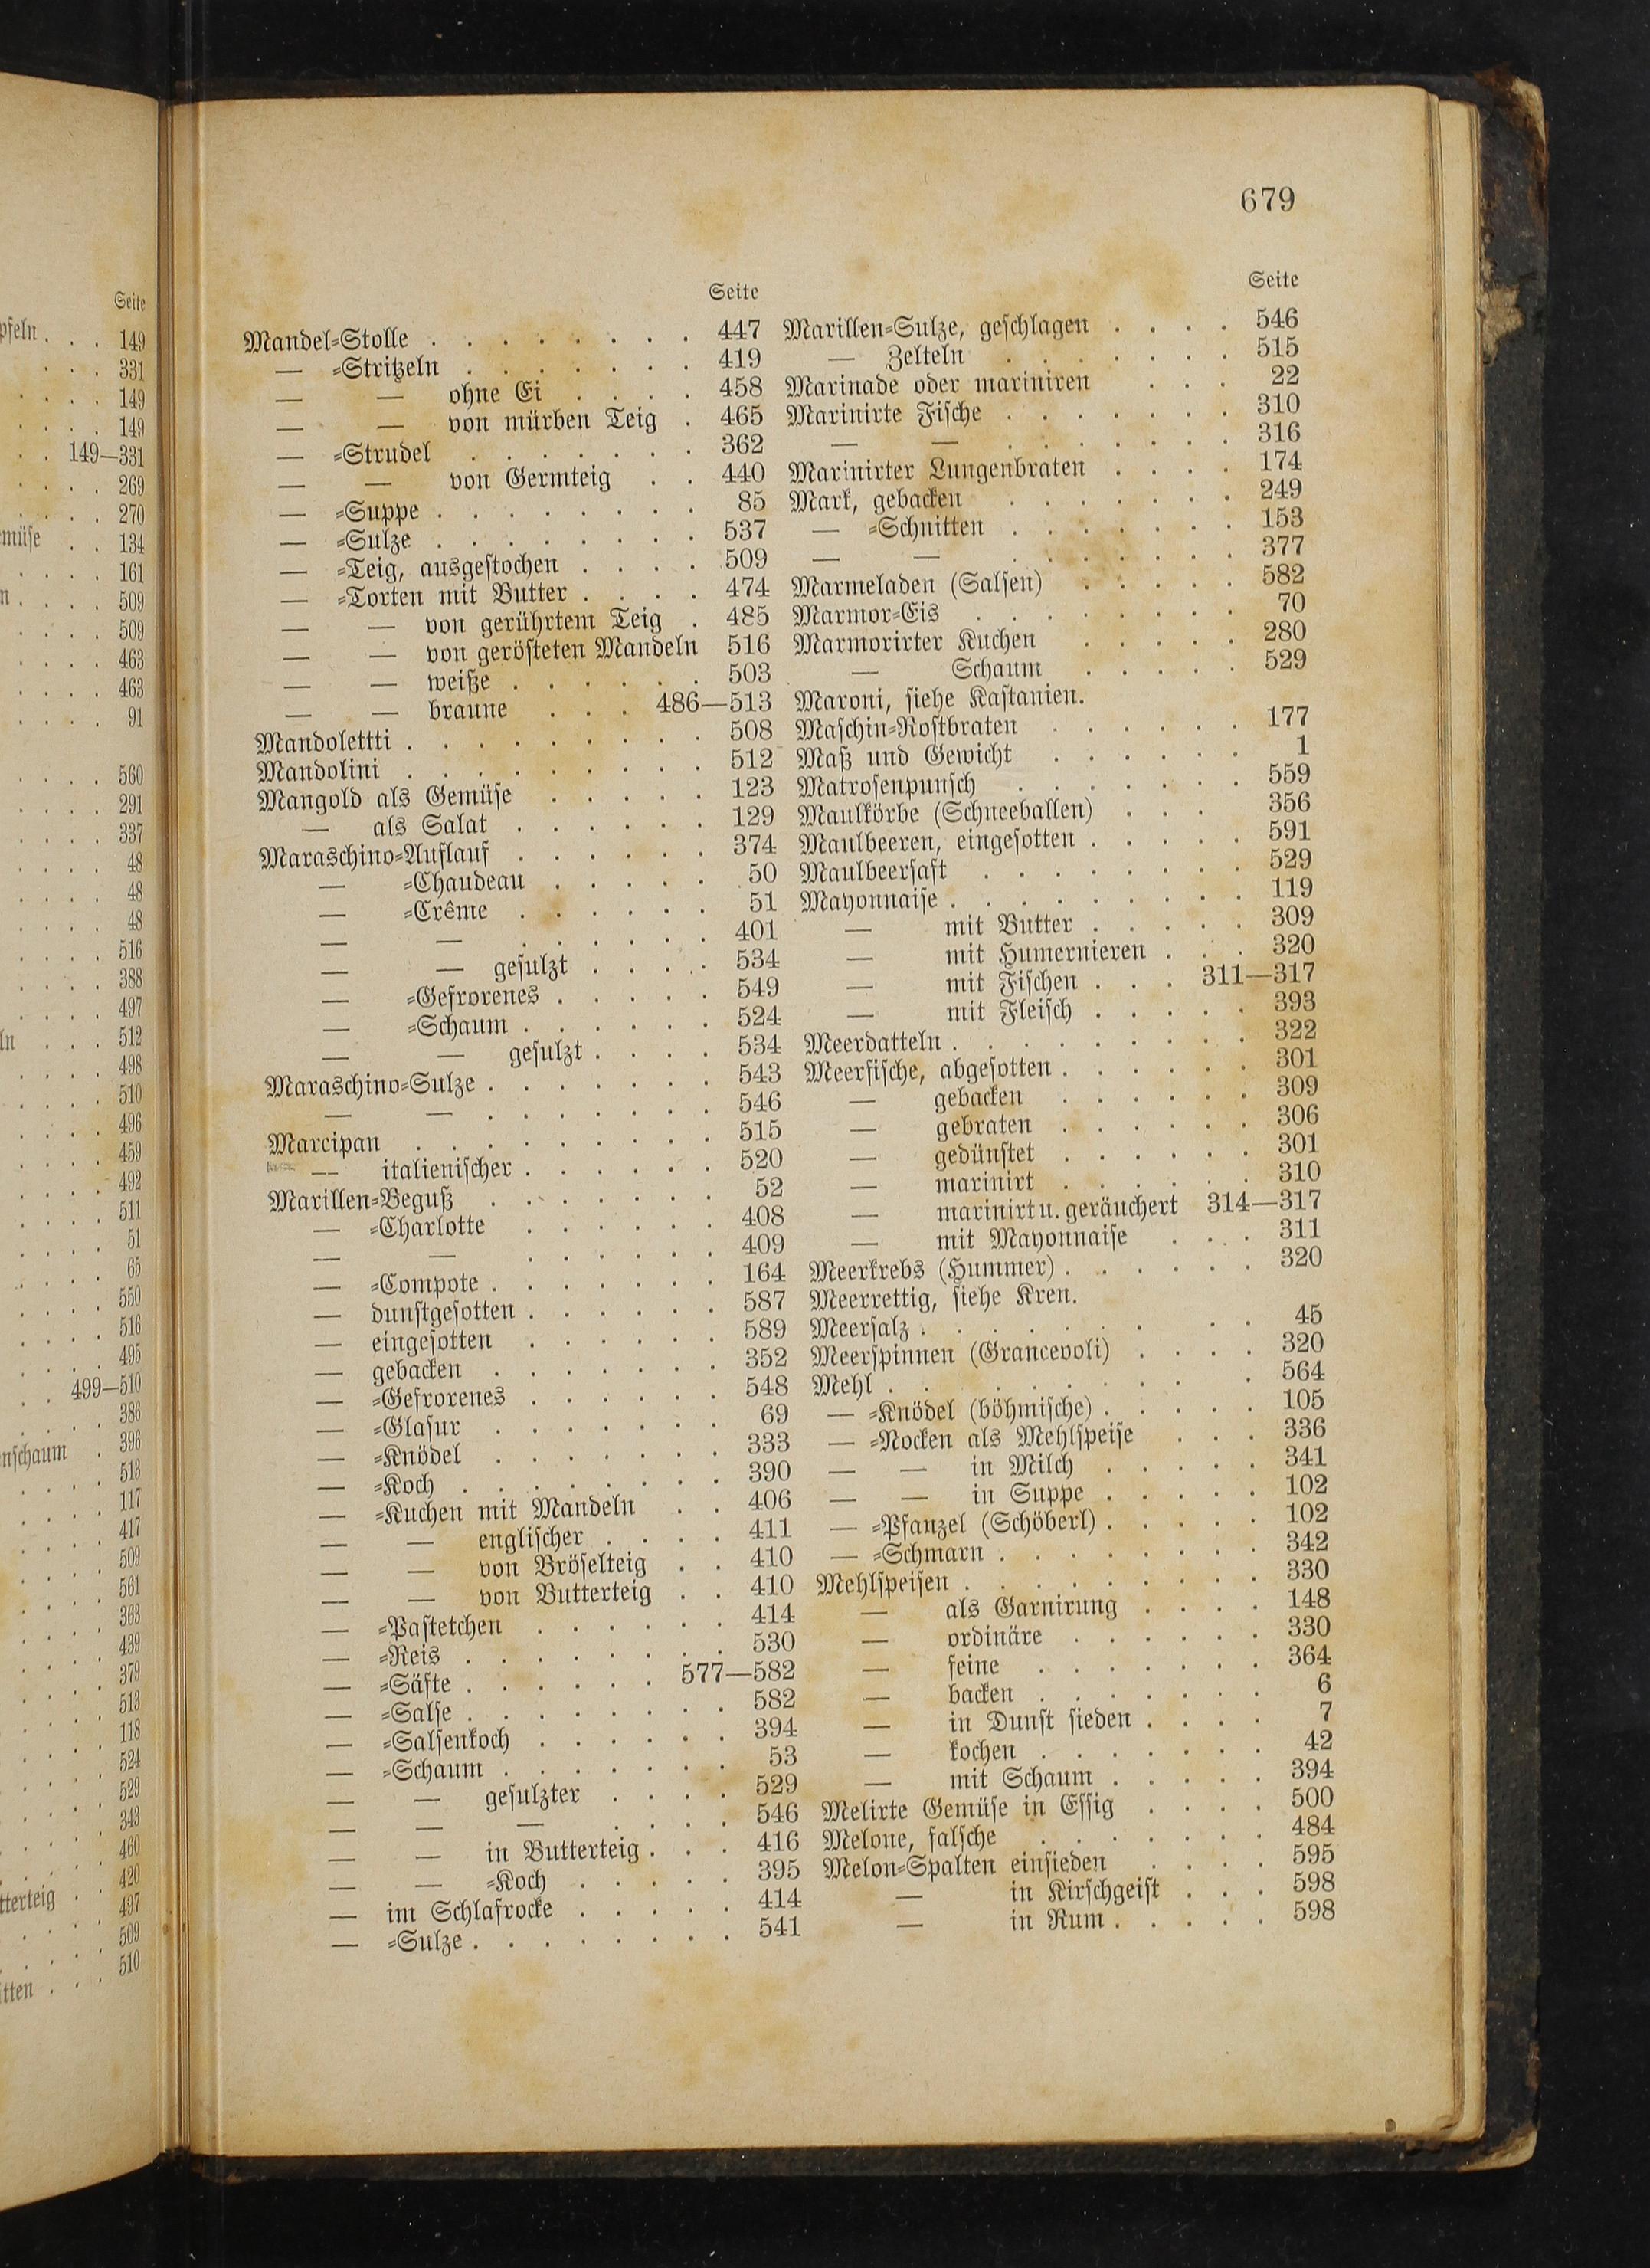 Seite
pfeln . . . 149
. . . 331
. . . . 149
. . . . 149
. . 149—331
. . . . 269
. . . . 270
emüse . . 134
. . . . 161
n . . . . 509
. . . . 509
. . . . 463
. . . . 463
. . . . 91
. . . . 560
. . . . 291
. . . . 337
. . . . 48
. . . . 48
. . . . 48
. . . . 516
. . . . 388
. . . . 497
ln . . . 512
. . . . 498
. . . . 510
. . . . 496
. . . . 459
. . . . 492
. . . . 511
. . . . 51
. . . . 65
. . . . 550
. . . . 516
. . . . 495
. . 499—510
. . . . 386
nschaum . 396
. . . . 513
. . . . 117
. . . . 417
. . . . 509
. . . . 561
. . . . 363
. . . . 439
. . . . 379
. . . . 513
. . . . 118
. . . . 524
. . . . 529
. . . . 343
. . . . 460
. . . . 420
tterteig . . 497
. . . . 509
tten . . . 510
679
Seite
Mandel-Stolle . . . . . . . . 447
— -Stritzeln . . . . . . . 419
— — ohne Ei . . . . 458
— — von mürben Teig . 465
— -Strudel . . . . . . . 362
— — von Germteig . . 440
— -Suppe . . . . . . . . 85
— -Sulze . . . . . . . . 537
— -Teig, ausgestochen . . . . 509
— -Torten mit Butter . . . . 474
— — von gerührtem Teig . 485
— — von gerösteten Mandeln 516
— — weiße . . . . . . 503
— — braune . . . 486—513
Mandolettti . . . . . . . . . 508
Mandolini . . . . . . . . . 512
Mangold als Gemüse . . . . . 123
— als Salat . . . . . . 129
Maraschino-Auflauf . . . . . . 374
— -Chaudeau . . . . . 50
— -Crême . . . . . . 51
— — . . . . . . 401
— — gesulzt . . . . 534
— -Gefrorenes . . . . . 549
— -Schaum . . . . . . 524
— — gesulzt . . . . 534
Maraschino-Sulze . . . . . . . 543
— — . . . . . . . 546
Marcipan . . . . . . . . . 515
— italienischer . . . . . . 520
Marillen-Beguß . . . . . . . 52
— -Charlotte . . . . . . 408
— — . . . . . . 409
— -Compote . . . . . . . 164
— dunstgesotten . . . . . . 587
— eingesotten . . . . . . 589
— gebacken . . . . . . . 352
— -Gefrorenes . . . . . . 548
— -Glasur . . . . . . . 69
— -Knödel . . . . . . . 333
— -Koch . . . . . . . . 390
— -Kuchen mit Mandeln . . 406
— — englischer . . . . 411
— — von Bröselteig . . 410
— — von Butterteig . . 410
— -Pastetchen . . . . . . 414
— -Reis . . . . . . . . 530
— -Säfte . . . . . . 577—582
— -Salse . . . . . . . . 582
— -Salsenkoch . . . . . . 394
— -Schaum . . . . . . . 53
— — gesulzter . . . . 529
— — — . . . . 546
— — in Butterteig . . . 416
— — -Koch . . . . . 395
— im Schlafrocke . . . . . 414
— -Sulze . . . . . . . . 541
Seite
Marillen-Sulze, geschlagen . . . . 546
— Zelteln . . . . . . . 515
Marinade oder mariniren . . . 22
Marinirte Fische . . . . . . . 310
— — . . . . . . . 316
Marinirter Lungenbraten . . . . 174
Mark, gebacken . . . . . . . 249
— -Schnitten . . . . . . . 153
— — . . . . . . . 377
Marmeladen (Salsen) . . . . . 582
Marmor-Eis . . . . . . . . 70
Marmorirter Kuchen . . . . . 280
— Schaum . . . . . 529
Maroni, siehe Kastanien.
Maschin-Rostbraten . . . . . . 177
Maß und Gewicht . . . . . . 1
Matrosenpunsch . . . . . . . 559
Maulkörbe (Schneeballen) . . . . 356
Maulbeeren, eingesotten . . . . . 591
Maulbeersaft . . . . . . . . 529
Mayonnaise . . . . . . . . . 119
— mit Butter . . . . . 309
— mit Humernieren . . . 320
— mit Fischen . . . 311—317
— mit Fleisch . . . . . 393
Meerdatteln . . . . . . . . . 322
Meerfische, abgesotten . . . . . . 301
— gebacken . . . . . . 309
— gebraten . . . . . . 306
— gedünstet . . . . . . 301
— marinirt . . . . . . 310
— marinirt u. geräuchert 314—317
— mit Mayonnaise . . . 311
Meerkrebs (Hummer) . . . . . . 320
Meerrettig, siehe Kren.
Meersalz . . . . . . . . . 45
Meerspinnen (Grancevoli) . . . . 320
Mehl . . . . . . . . . 564
— -Knödel (böhmische) . . . . . 105
— -Nocken als Mehlspeise . . . 336
— — in Milch . . . . . 341
— — in Suppe . . . . . 102
— -Pfanzel (Schöberl) . . . . . 102
— -Schmarn . . . . . . . . 342
Mehlspeisen . . . . . . . . . 330
— als Garnirung . . . . 148
— ordinäre . . . . . . 330
— feine . . . . . . . 364
— backen . . . . . . . 6
— in Dunst sieden . . . . 7
— kochen . . . . . . . 42
— mit Schaum . . . . . 394
Melirte Gemüse in Essig . . . . 500
Melone, falsche . . . . . . . 484
Melon-Spalten einsieden . . . . 595
— in Kirschgeist . . . 598
— in Rum . . . . . 598